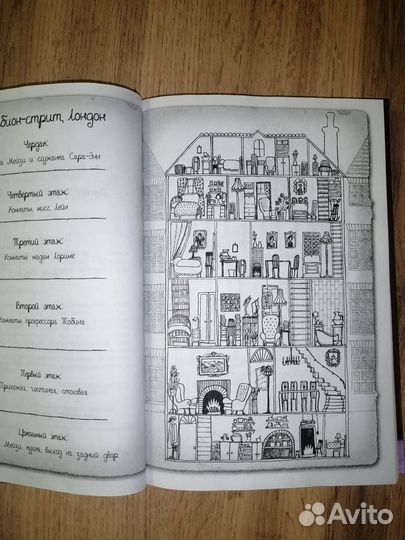 бион-стрит, Лондон
Чердак:
а Мейзи и служанка Сара-Энн
Четвертый этаж:
Комнаты мисс Лейн
Третий этаж:
Комнаты мадам Лориме
Второй этаж:
Комнаты профессора Тобина
Первый этаж:
Прихожая, гостиная, столовая
Цокольный этаж:
Мейзи, кухня, выход на задний двор
Avito